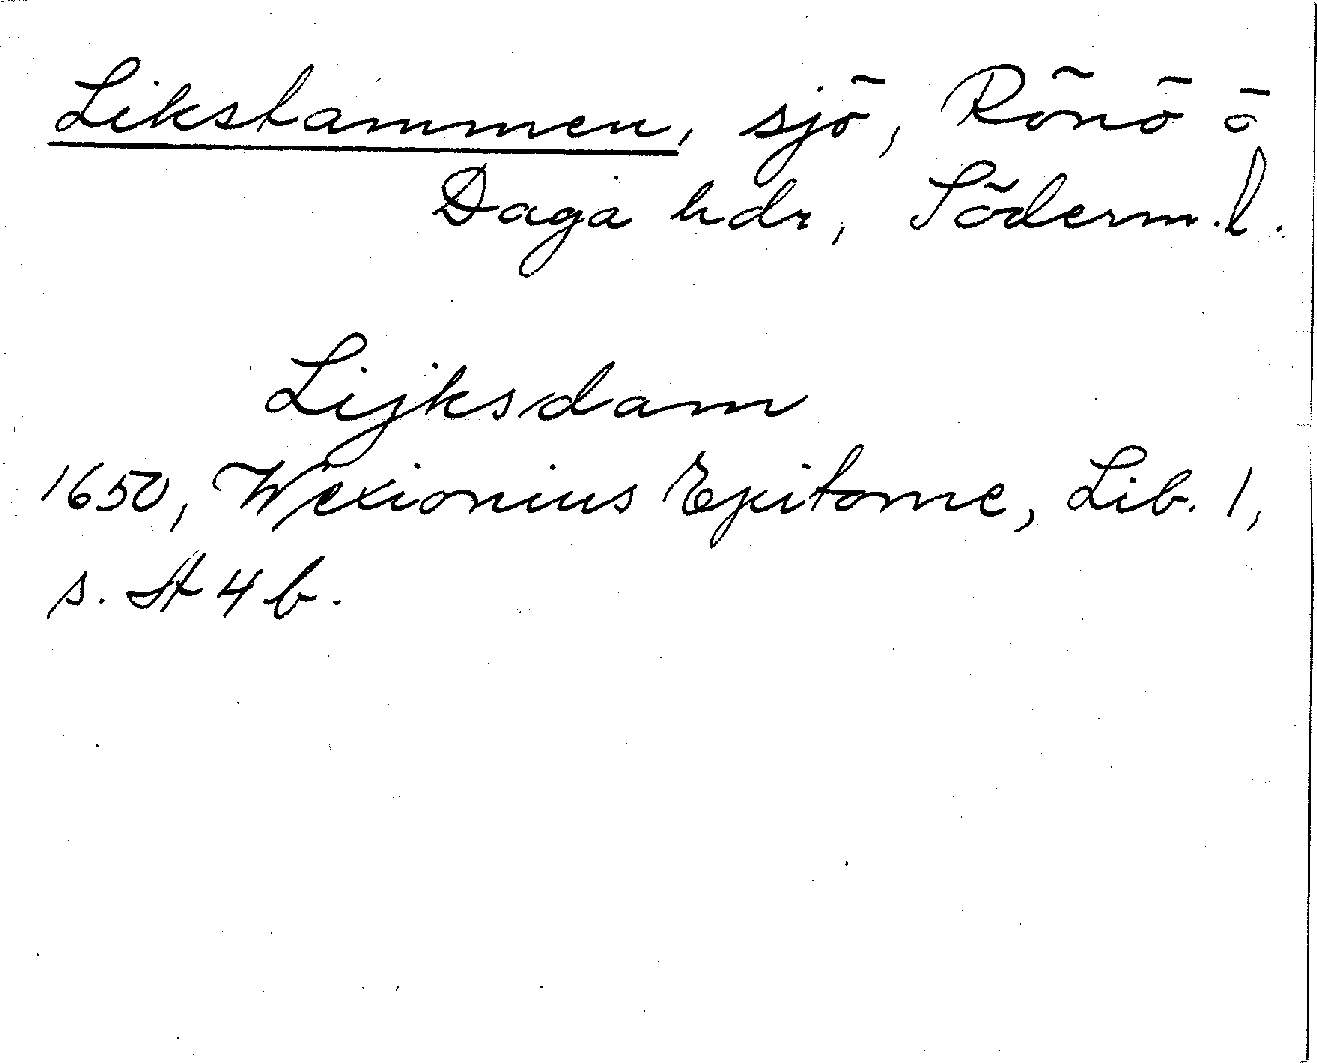 Likstammen, sjö, Rönö o
Daga hdr, Söderm.l.
Lijksdam
1650, Wexionius Epitome, Lib. 1,
s. A 4 b.